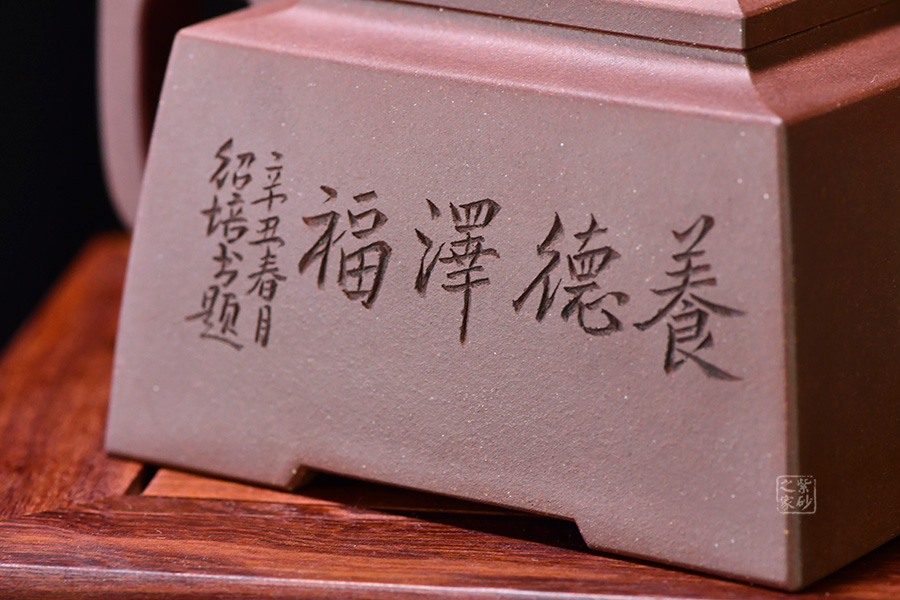 養德澤福
辛丑春月
绍培书题
紫砂
之家